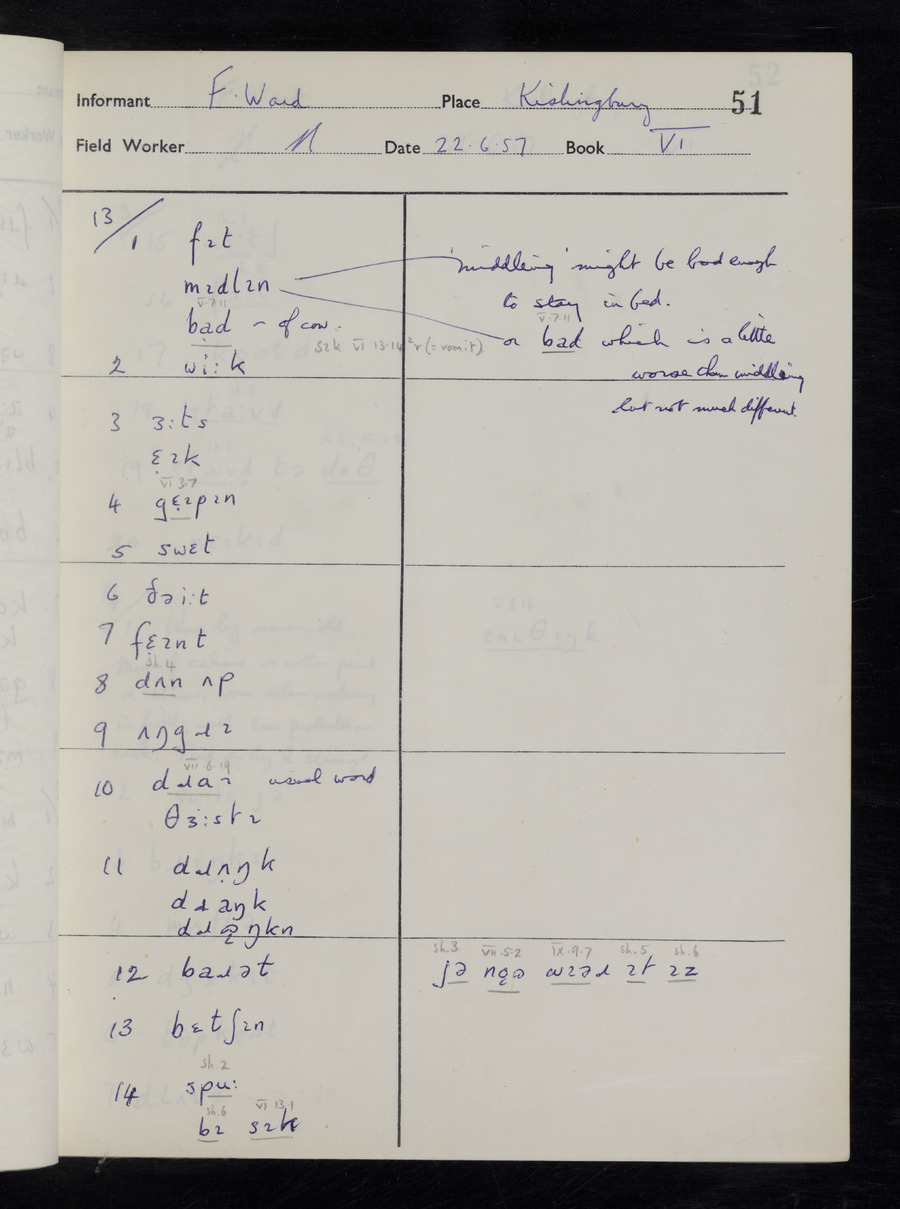 51
Informant F. Ward Place Kislingbury
Field Worker Date 22.6.57 Book VI
13/1 fɪt
mɪdlɪn 'middling' might be bad enough
to stay in bed.
V.7.11
bad - of cow.
V.7.11
or bad which is a little
worse than middling
but not much different.
sɪk VI.13.14
(= vomit)
2 wi:k
3 ɜ:ts
ɛɪk
VI 3.7
4 gɛɪpɪn
5 swɛt
6 ðəi:t
7 fɛɪnt
sh.4
8 dʌn ʌp
9 ʌŋgɹɪ
VII.6.19
10 dɹaɪ usual word
θɜ:stɪ
11 dɹʌŋk
dɹaŋk
dɹəŋkn
12 baɹət
sh.3 VII.5.2 IX.9.7 sh.5 sh.6
ɪt ɪz
13 bɛtʃɪn
sh.2
14 spu:
sh.6 VI 13.1
bɪ sɪk